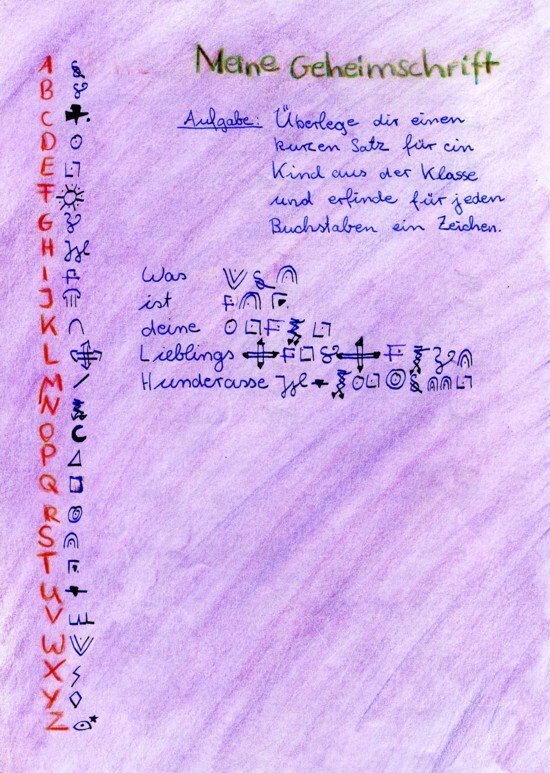 Meine Geheimschrift
Aufgabe: Überlege dir einen
kurzen Satz für ein
Kind aus der Klasse
und erfinde für jeden
Buchstaben ein Zeichen.
A
B
C
D
E
F
G
H
I
J
K
L
M
N
O
P
Q
R
S
T
U
V
W
X
Y
Z
Was
ist
deine
Lieblings
Hunderasse